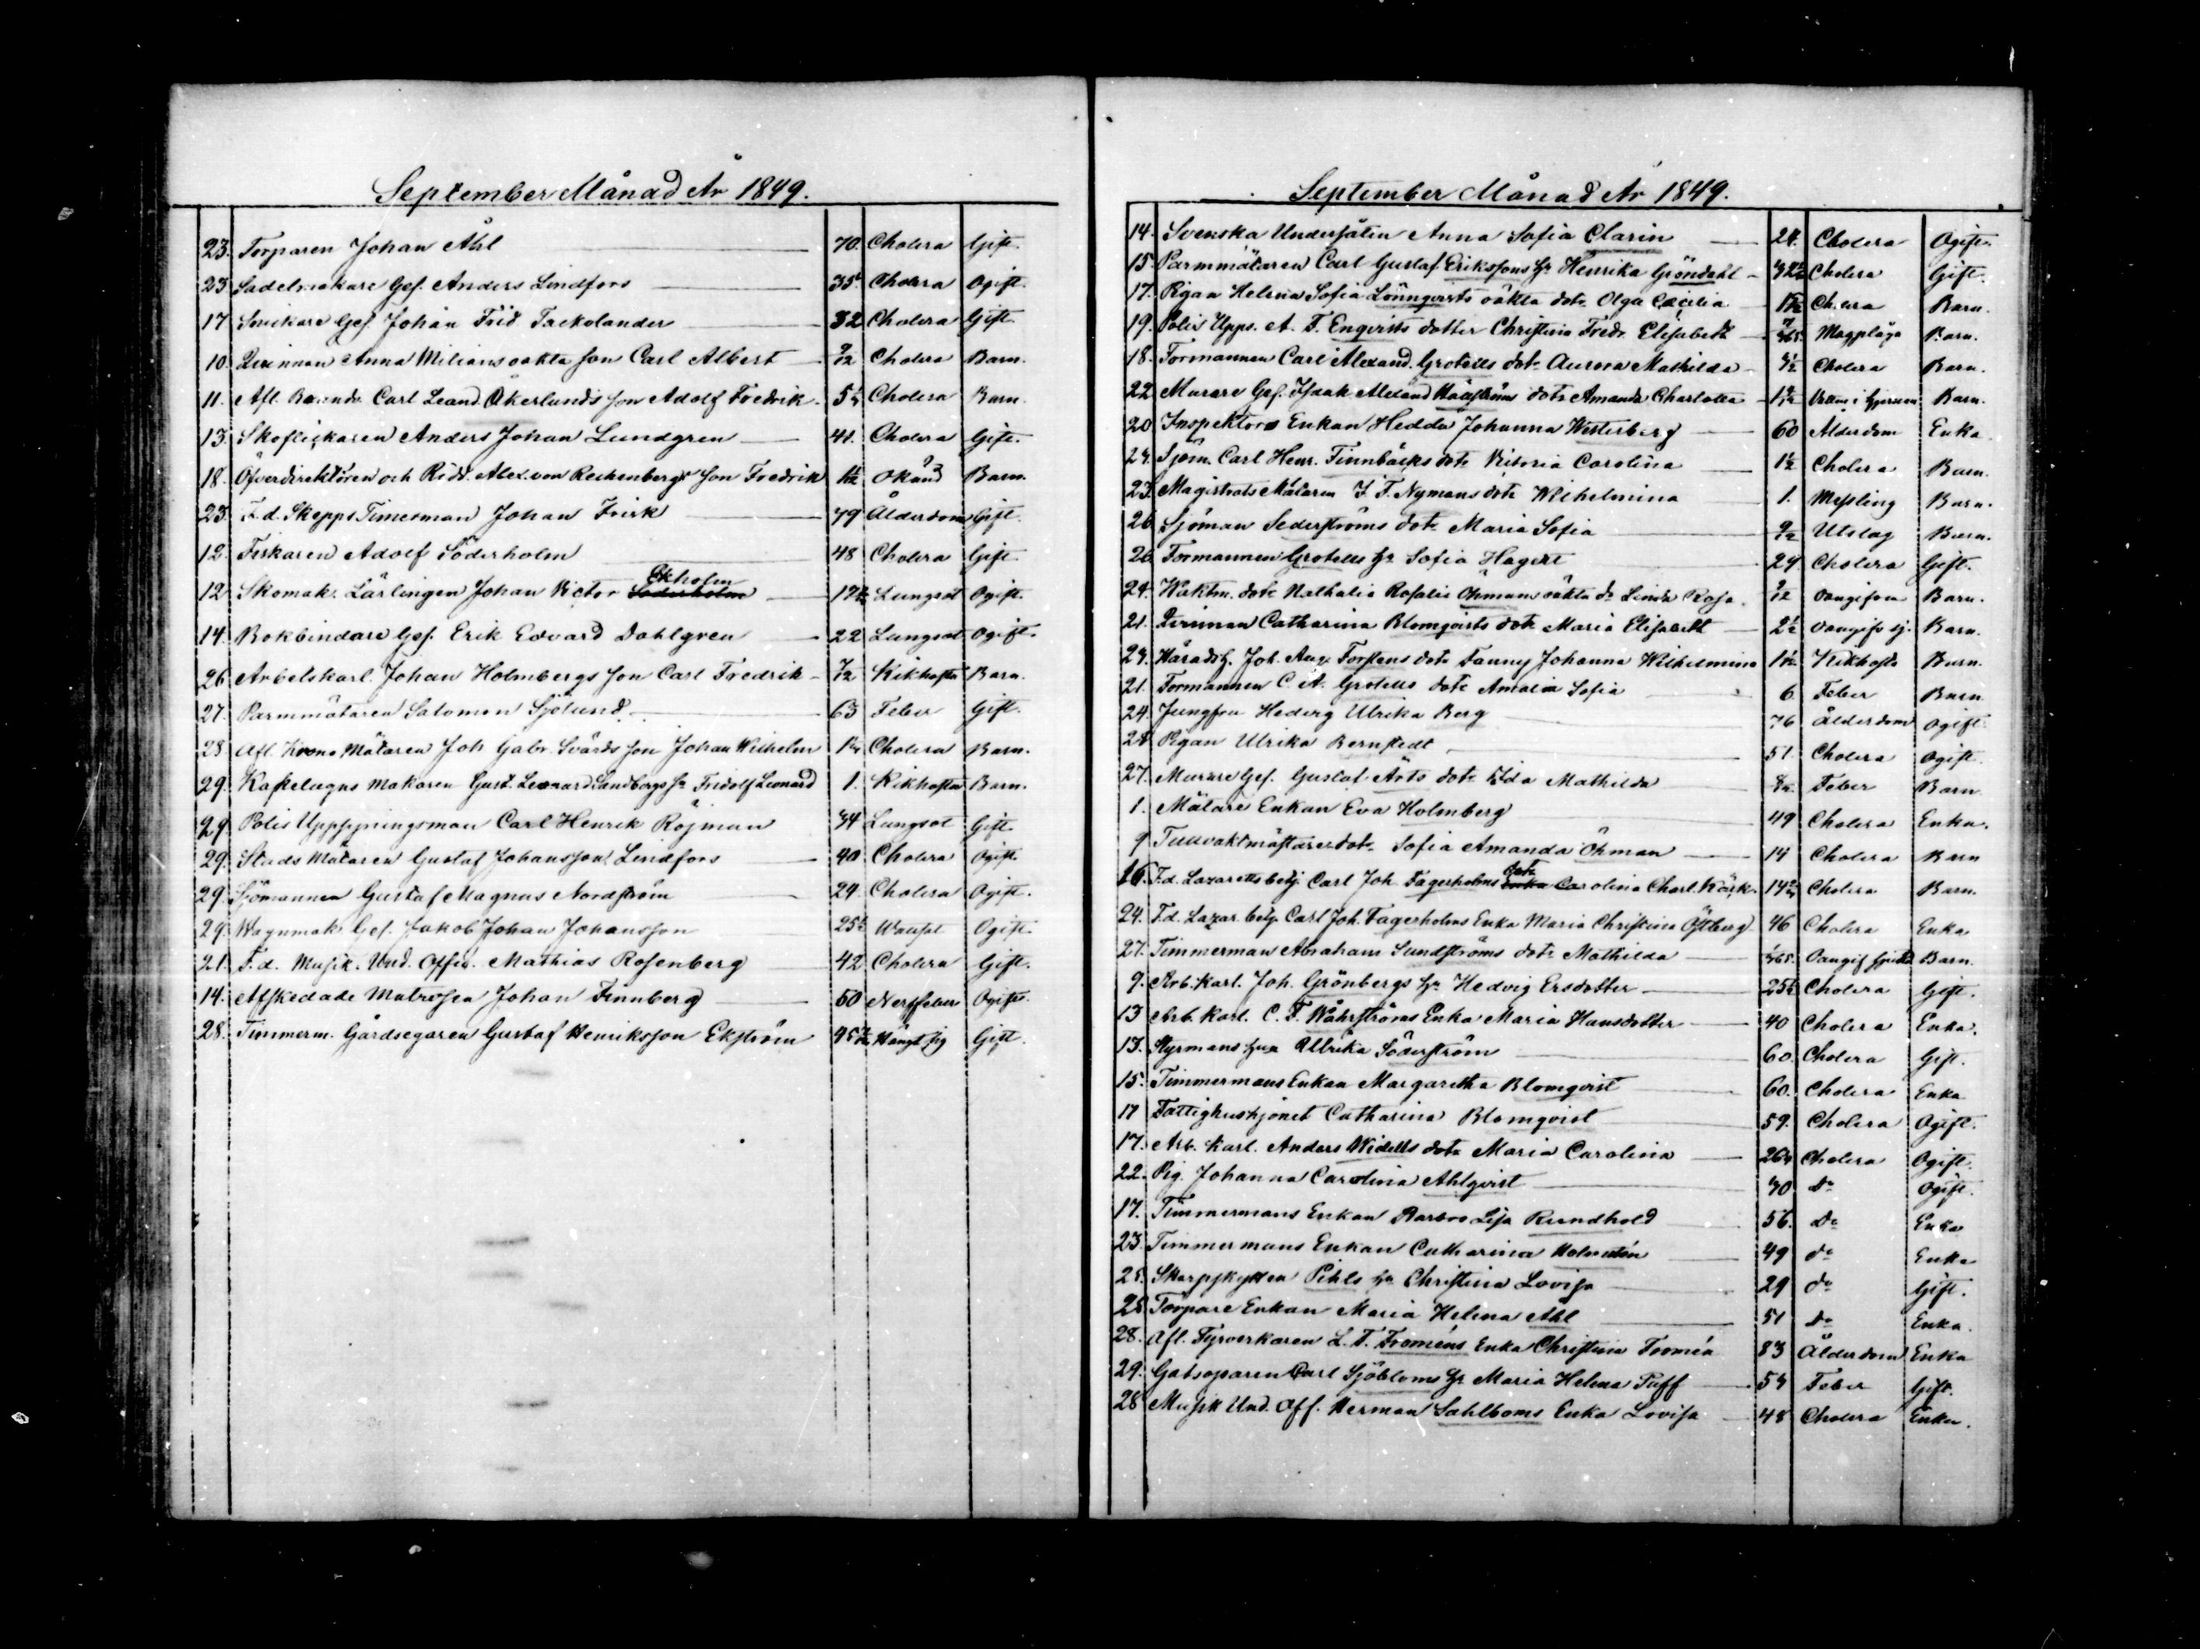 September Månad År 1849.
23. Torparen Johan Ahl 70. Cholera Gift.
23 Sadelmakare Ges. Anders Lindfors 35 Cholera Ogift.
17 Snickare Ges. Johan Frid. Tackolander 32 Cholera Gift
10. Qvinnan Anna Milians oäkta son Carl Albert 9/12 Cholera Barn.
11. Afl. Carl Leand. Åkerlunds son Adolf Fredrik. Cholera Barn.
13. Skoflickaren Anders Johan Lundgren 41. Cholera Gift.
18. Öfverdirektören och Ridd. Alex. von Rechenbergs son Fredrik 1/12 Okänd Barn.
23. F.d. Skepps Timerman Johan Frisk 79 Ålderdom Gift.
12. Fiskaren Adolf Söderholm 48 Cholera Gift.
12 Skomak. Lärlingen Johan Victor Ekholm Lungsot Ogift.
14. Bokbindare Ges. Erik Edvard Dahlgren 22 Lungsot Ogift.
26 Arbetskarl. Johan Holmbergs son Carl Fredrik 7/12 Kikhosta Barn.
27. Parmmätaren Salomon Sjölund 63 Feber Gift.
28 Afl. Krono Mätaren Joh Gabr. Svärds son Johan Wilhelm Cholera Barn.
29. Kakelugns makaren Gust. Leonard Sandbergs sn Fridolf Leonard 1. Kikhosta Barn.
29 Polis Uppsyningsman Carl Henrik Röjman 34 Lungsot Gift
29. Stads Mätaren Gustaf Johansson Lindfors 40 Cholera Ogift.
29. Sjömannen Gustaf Magnus Nordström 24. Cholera Ogift.
29 Wagnmak. Ges. Jakob Johan Johansson Ogift.
21. F.d. Musik. Und. Offic. Mathias Rosenberg 42 Cholera Gift.
14. Afskedade Matrosen Johan Finnberg 50 Nerffeber Ogift
28. Timmerm. Gårdsegaren Gustaf Henriksson Ekström Hängt sig Gift.
September Månad År 1849.
14. Svenska Undersåten Anna Sofia Clarin 24. Cholera Ogift.
15. Parmmätaren Carl Gustaf Erikssons hr Henrika Gröndahl Cholera Gift.
17. Pigan Helena Sofia Lönnqvists oäkta dotr Olga Cecilia Cholera Barn.
19. Polis Upps. A. F. Engvists dotter Christina Fredr. Elisabeth Magplåga Barn.
18. Formannen Carl Alexand. Grotells dotr Aurora Mathilda Cholera Barn.
22 Murare Ges. Isaak Alexand dotr Amanda Charlotta Barn.
20 Inspektors Enkan Hedda Johanna Westerberg 60 Ålderdom Enka
24. Sjöm. Carl Henr. Finnbäcks dotr Victoria Carolina 1½ Cholera Barn.
23. Magistrats Mätaren J. F. Nymans dotr Wilhelmina 1. Messling Barn.
26 Sjöman Sederströms dotr Maria Sofia 9/12 Utslag Barn.
26. Formannen Grotells hr Sofia Hagert 24 Cholera Gift.
24. Waktm. dotr Nathalia Rosalia Öhmans oäkta dr Linda Rosa. Oangifven Barn.
21. Qvinnan Catharina Blomqvists dotr Maria Elisabeth Oangifv sj. Barn.
24. Häradsh. Joh. Aug. Forstens dotr Fanny Johanna Wilhelmina Kikhosta Barn.
21. Formannen C. A. Grotells dotr Amalia Sofia 6 Feber Barn
24. Jungfru Hedvig Ulrika Berg 76 Ålderdom Ogift.
28 Pigan Ulrika Bernstedt 51 Cholera Ogift.
27. Murare Ges. Gustaf Ärts dotr Ida Mathilda 8/12 Feber Barn
1. Mätare Enkan Eva Holmberg 49 Cholera Enka.
9 Tullvaktmästare dotr Sofia Amanda Öhman 14 Cholera Barn
16. F.d. Lazarettsbetj. Carl Joh. Fagerholms dotr Carolina Charl. Cholera Barn.
24. F.d. Lazar. betj. Carl Joh. Fagerholms Enka Maria Christina Östberg 46 Cholera Enka
27. Timmerman Abraham Sundströms dotr Mathilda Oangif sjukd. Barn.
9. Arb. Karl. Joh. Grönbergs hr Hedvig Ersdotter 25½ Cholera Gift.
13 Arb. Karl. C. F. Wåhrströms Enka Maria Hansdotter 40 Cholera Enka.
13. Styrmans hua Ullrika Söderström 60. Cholera Gift.
15. Timmermans Enkan Margaretha Blomqvist 60. Cholera Enka
17 Fattighushjonet Catharina Blomqvist 59. Cholera Ogift.
17. Arb. Karl. Anders Widells dotr Maria Carolina Cholera Ogift
22. Pig. Johanna Carolina Ahlqvist 30 do Ogift.
17. Timmermans Enkan Barbro Lisa Rundhold 56. do Enka
23. Timmermans Enkan Catharina Holmstén 49 do Enka
25. Skarpskytten Pihls hr Christina Lovisa 29 do Gift.
28. Torpare Enkan Maria Helena Ahl 51 do Enka.
28. Afl. Fyrverkaren L. F. Froméns Enka Christina Fromén 83 Ålderdom Enka
29. Gatsoparen Carl Sjöbloms hr Maria Helena Puff 54 Feber Gift.
28 Musik Und. Off. Herman Sahlboms Enka Lovisa 48 Cholera Enka.